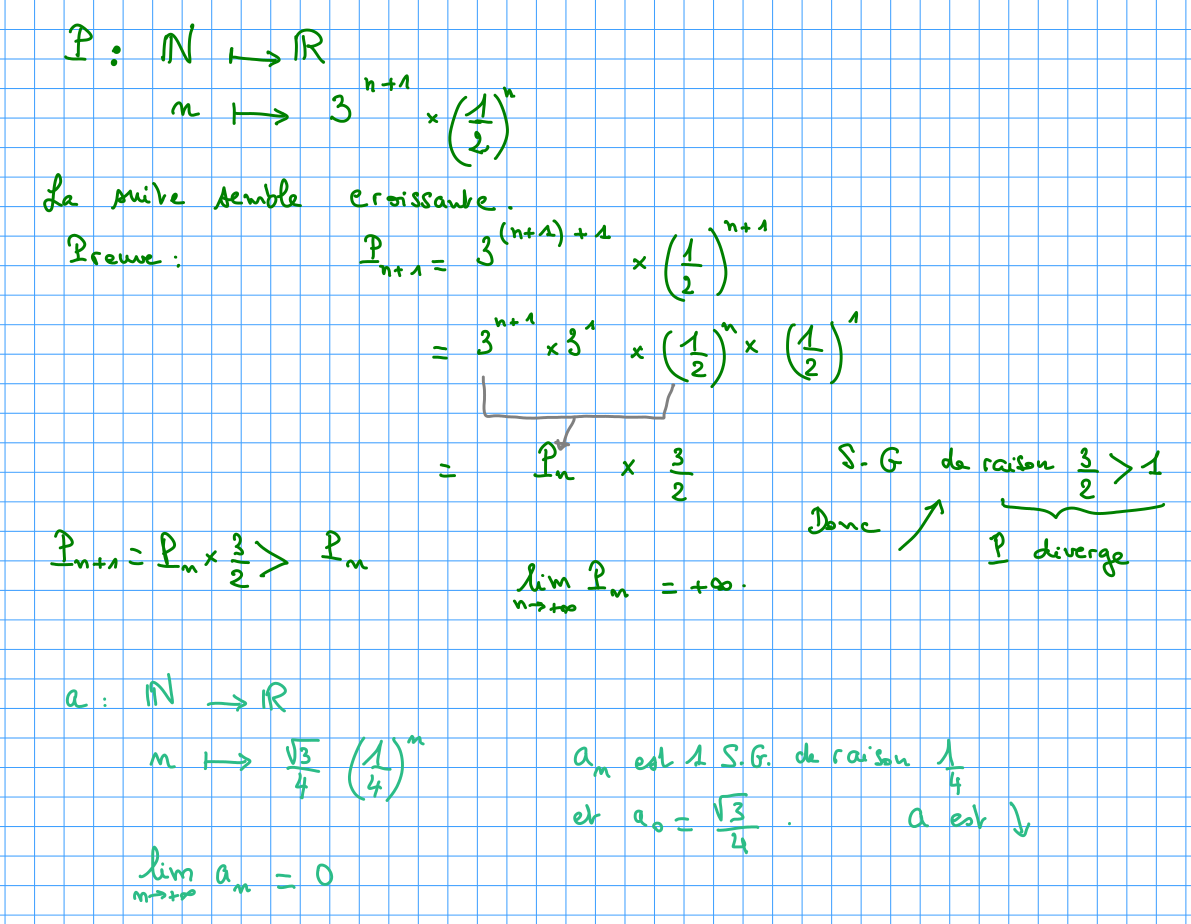 P : ℕ ⟼ ℝ
n ⟼ 3^{n+1} × (1/2)^n
La suite semble croissante.
Preuve : P_{n+1} = 3^{(n+1)+1} × (1/2)^{n+1}
= 3^{n+1} × 3^1 × (1/2)^n × (1/2)^1
= P_n × 3/2
S.G de raison 3/2 > 1
Donc
P diverge
P_{n+1} = P_n × 3/2 > P_n
lim_{n→+∞} P_n = +∞.
a : ℕ → ℝ
n ⟼ √3/4 (1/4)^n
a_n est 1 S.G. de raison 1/4
et a_0 = √3/4 . a est ↘
lim_{n→+∞} a_n = 0